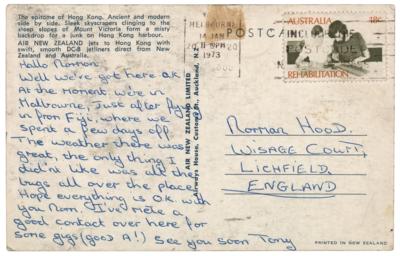 The epitome of Hong Kong. Ancient and modern
side by side. Sleek skyscrapers clinging to the
steep slopes of Mount Victoria form a misty
backdrop for a junk on Hong Kong harbour.
AIR NEW ZEALAND jets to Hong Kong with
swift, smooth DC8 jetliners direct from New
Zealand and Australia.
Hallo Norman
Well we've got here O.K.
At the moment we're in
Melbourne, Just after flying
in from Fiji, where we
spent a few days off.
The weather there was
great, the only thing I
didn't like was all the
bugs all over the place
Hope everything is O.K. with
you Norm. I've met a
good contact over here for
some gigs (good A!) See you soon Tony
AIR NEW ZEALAND LIMITED
Airways House, Customs St., Auckland, N.Z.
POSTCARD
MELBOURNE
14 JAN
11 PM
1973
INCLUDE
POSTCODE
AUSTRALIA 18c
REHABILITATION
Norman Hood.
Wisage Court,
LICHFIELD.
ENGLAND
PRINTED IN NEW ZEALAND